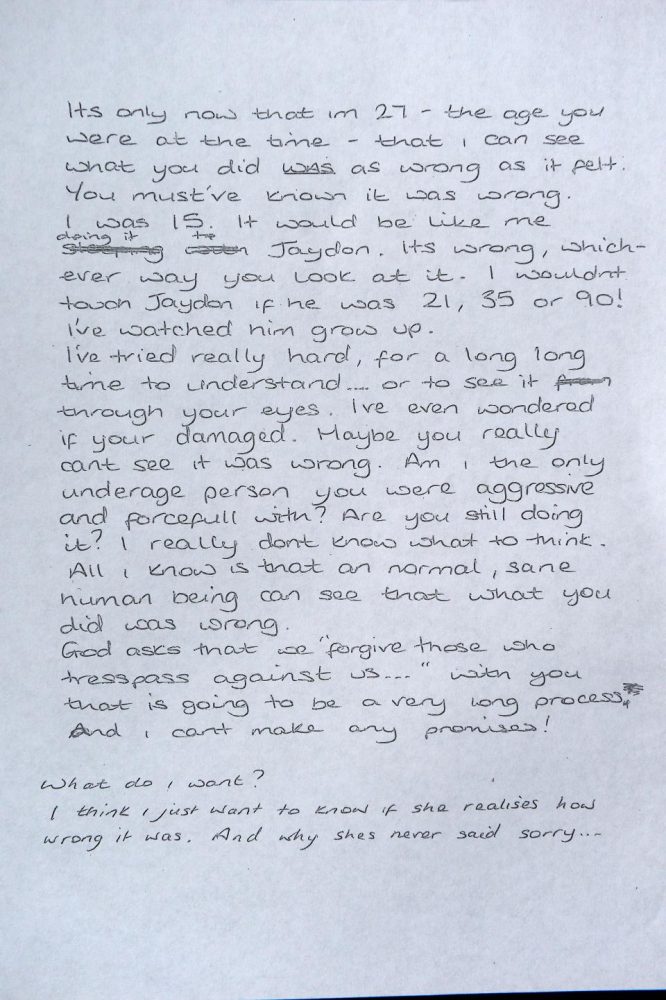 Its only now that im 27 - the age you
were at the time - that i can see
what you did was as wrong as it felt.
You must've known it was wrong.
I was 15. It would be like me
doing it to
Jaydon. Its wrong, which-
ever way you look at it. I wouldnt
touch Jaydon if he was 21, 35 or 90!
I've watched him grow up.
I've tried really hard, for a long long
time to understand.... or to see it
through your eyes. I've even wondered
if your damaged. Maybe you really
cant see it was wrong. Am i the only
underage person you were aggressive
and forcefull with? Are you still doing
it? I really dont know what to think.
All i know is that an normal, sane
human being can see that what you
did was wrong.
God asks that we "forgive those who
tresspass against us..." with you
that is going to be a very long process.
And i cant make any promises!
What do i want?
I think i just want to know if she realises how
wrong it was. And why shes never said sorry...